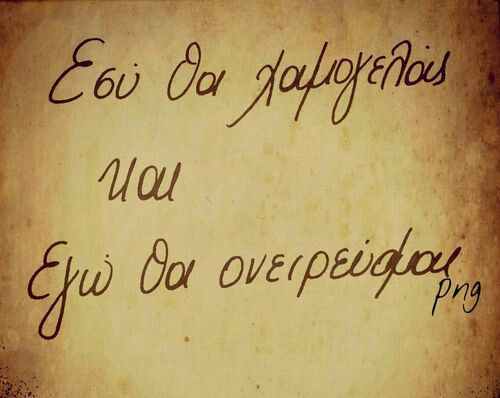 Εσύ θα χαμογελάς
και
Εγώ θα ονειρεύομαι
png